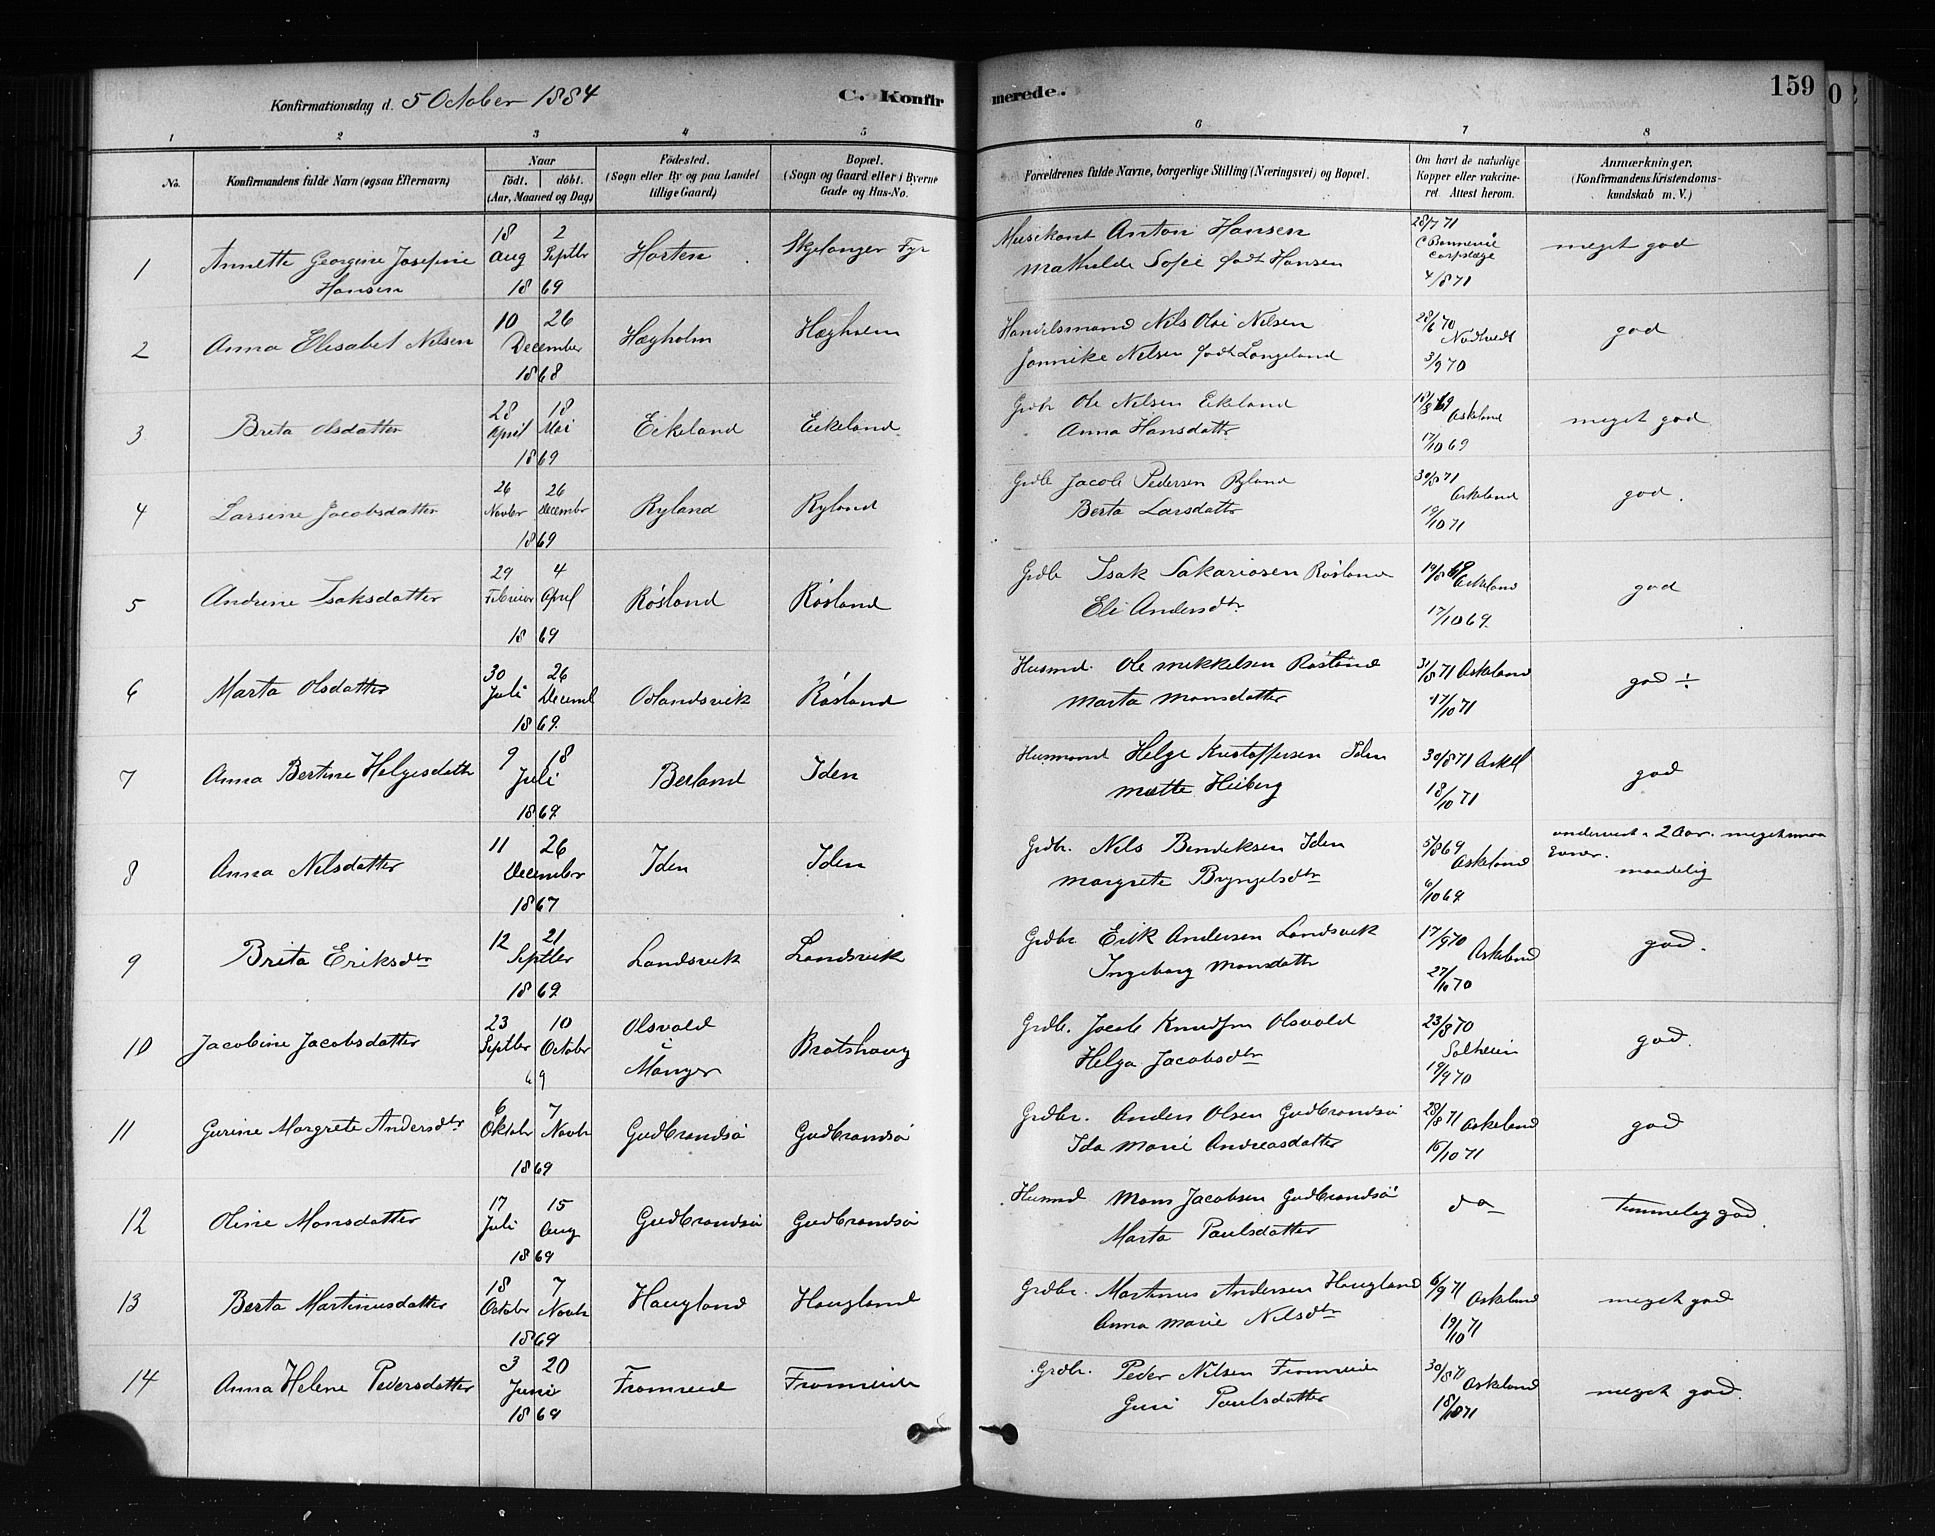 Konfirmationsdag d. 5 October 1884
C. Konfirmerede.
159
1 2 3 4 5 6 7 8
No.
Konfirmandens fulde Navn (ogsaa Efternavn)
Naar
födt. döbt.
(Aar, Maaned og Dag)
Födested.
(Sogn eller By og paa Landet
tillige Gaard)
Bopæl.
(Sogn og Gaard eller i Byerne
Gade og Hus-No.
Forældrenes fulde Navne, borgerlige Stilling (Næringsvei) og Bopæl.
Om havt de naturlige
Kopper eller vakcine-
ret. Attest herom.
Anmærkninger.
(Konfirmandens Kristendoms-
kundskab m. V.)
1 Annette Georgine Josepine Hansen 18 Aug 2 Septbr 1869 Horten Skjelanger Fyr Musikant Anton Hansen
Mathilde Sofie født Hansen 28/7 71 C Bonnevie Corpslæge 4/8 71 meget god
2 Anna Elisabet Nilsen 10 26 December 1868 Hægholm Hægholm Handelsmand Nils Olai Nilsen
Jannike Nilsen født Langeland 28/6 70 Nødtvedt 3/9 70 god
3 Brita Olsdatter 28 April 18 Mai 1869 Eikeland Eikeland Grdbr Ole Nilsen Eikeland
Anna Hansdatter 18/8 69 Askeland 17/10 69 meget god
4 Larsine Jacobsdatter 26 Novbr 26 Decembr 1869 Ryland Ryland Grdb Jacob Pedersen Ryland
Berta Larsdatter 30/8 71 Askeland 19/10 71 god.
5 Andrine Isaksdatter 29 Februar 4 April 1869 Røsland Røsland Grdb Isak Sakariasen Røsland
Eli Andersdtr 19/8 69 Askeland 17/10 69 god
6 Marta Olsdatter 30 Juli 26 Decemb 1869 Odlandsvik Røsland Husmd. Ole Mikkelsen Røsland
Marta Monsdatter 31/8 71 Askeland 17/10 71 god ÷
7 Anna Bertine Helgesdattr 9 18 Juli 1869 Berland Iden Husmand Helge Kristoffersen Iden
Mætte Heiberg 30/8 71 Askel 18/10 71 god
8 Anna Nilsdatter 11 26 December 1867 Iden Iden Grdbr. Nils Bendiksen Iden
Margrete Bryngelsdtr 5/8 69 Askeland 6/10 69 undervist i 2 Aar. meget smaa
Evner. maadelig
9 Brita Eriksdtr 12 21 Septbr 1869 Landsvik Landsvik Grdbr Erik Andersen Landsvik
Ingeborg Monsdattr 17/9 70 Askeland 27/10 70 god.
10 Jacobine Jacobsdatter 23 Septbr 10 Octobr 69 Olsvold i Manger Bratshaug Grdbr. Jacob Knudsen Olsvold
Helga Jacobsdtr 23/8 70 Solheim 19/9 70 god.
11 Gurine Margrete Andersdtr 6 Oktobr 7 Novbr 1869 Gudbrandsø Gudbrandsø Grdbr. Anders Olsen Gudbrandsø
Ida Marie Andreasdatter 28/8 71 Askeland 15/10 71 god
12 Oline Monsdatter 17 Juli 15 Aug 1869 Gudbrandsø Gudbrandsø Husmd Mons Jacobsen Gudbrandsø
Marta Paulsdatter do Temmelig god.
13 Berta Martinusdatter 18 Octobr 7 Novbr 1869 Haugland Haugland Grdbr. Martinus Andersen Haugland
Anna Marie Nilsdtr 6/9 71 Askeland 19/10 71 meget god
14 Anna Helene Pedersdatter 3 20 Juni 1869 Fromreide Fromreide Grdbr. Peder Nilsen Fromreide
Guri Paulsdatter 30/8 71 Askeland 18/10 71 meget god.